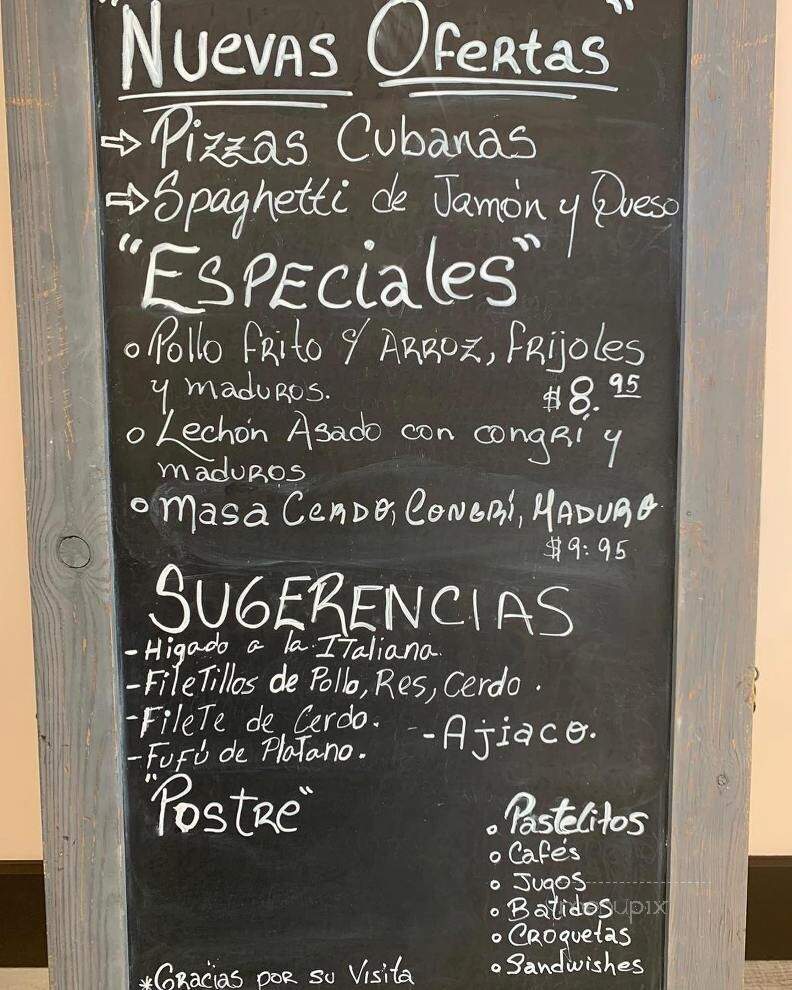 "Nuevas Ofertas"
⇨ Pizzas Cubanas
⇨ Spaghetti de Jamón y Queso
"Especiales"
o Pollo frito c/ Arroz, frijoles
y maduros. $8.95
o Lechón Asado con congrí y
maduros
o Masa Cerdo, Congrí, Maduro
$9:95
SUGERENCIAS
- Higado a la ITaliana.
- FileTillos de Pollo, Res, Cerdo.
- FileTe de Cerdo.
- Ajiaco.
- Fufú de Platano.
"Postre"
o Pastelitos
o Cafés
o Jugos
o Batidos
o Croquetas
o Sandwishes
*Gracias por su Visita
menupix